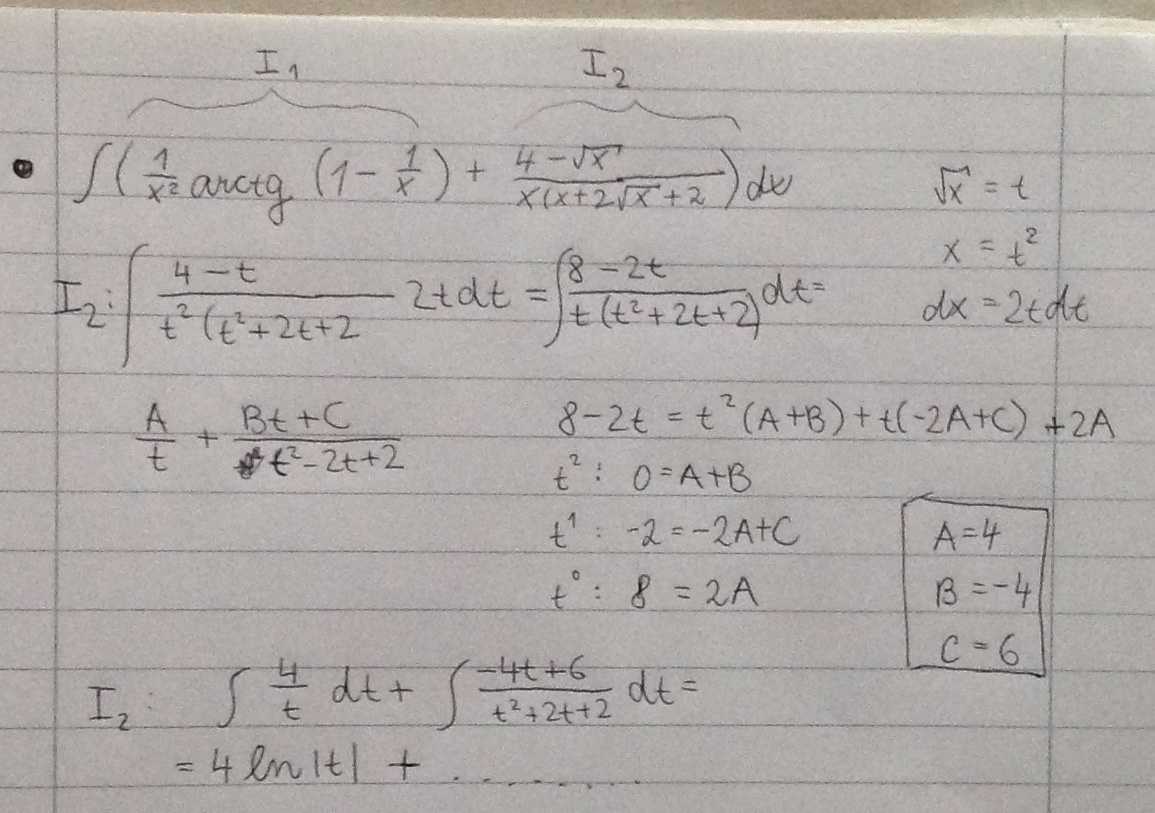 I₁ I₂
• ∫( 1/x² arctg (1 - 1/x) + (4 - √x)/(x(x+2√x+2) ) dx √x = t
x = t²
I₂: ∫ (4 - t)/(t² (t²+2t+2) 2t dt = ∫ (8 - 2t)/(t (t²+2t+2)) dt = dx = 2t dt
A/t + (Bt + C)/(t² - 2t + 2) 8 - 2t = t² (A+B) + t(-2A+C) + 2A
t² : 0 = A+B
t¹ : -2 = -2A+C A=4
t⁰ : 8 = 2A B = -4
C = 6
I₂ : ∫ 4/t dt + ∫ (-4t+6)/(t²+2t+2) dt =
= 4 ln |t| + . . . . . . .